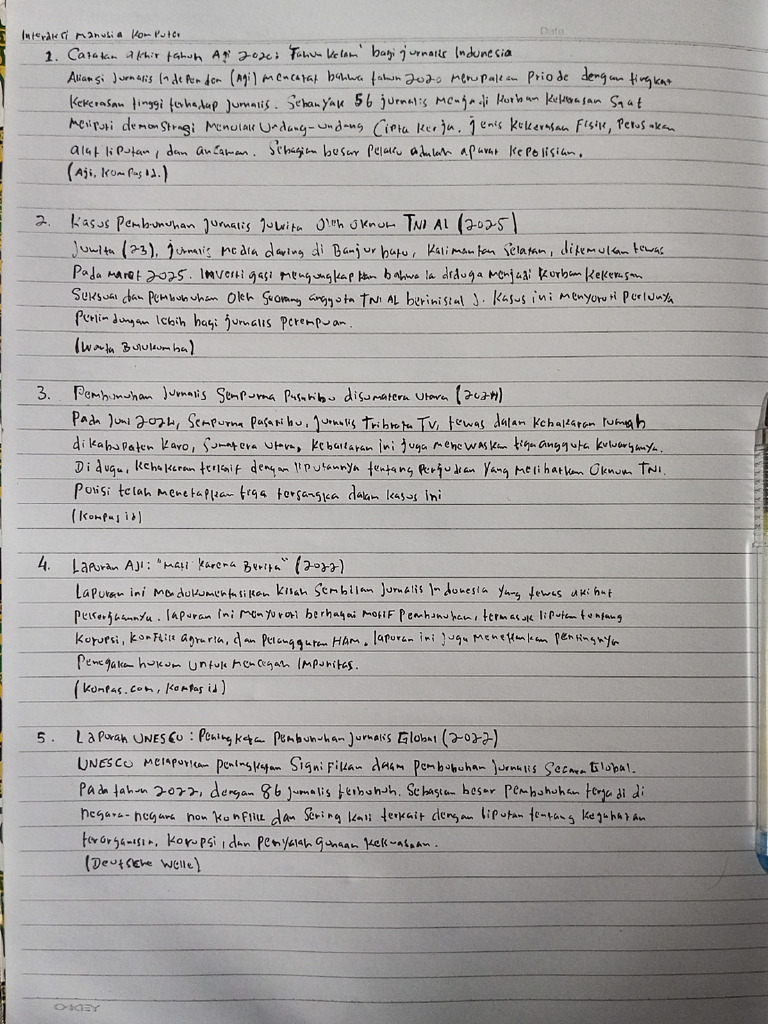 Interaksi manusia Komputer
Date
1. Catatan akhir tahun Aji 2020: 'Tahun kelam' bagi jurnalis Indonesia
Aliansi Jurnalis Independen (Aji) mencatat bahwa tahun 2020 merupakan Priode dengan tingkat
kekerasan tinggi terhadap jurnalis. Sebanyak 56 jurnalis menjadi korban kekerasan Saat
meliputi demonstrasi menolak Undang-undang Cipta kerja. jenis kekerasan Fisik, Perusakan
alat liputan, dan ancaman. Sebagian besar pelaku adalah aparat kepolisian.
(Aji, Kompas id.)
2. Kasus Pembunuhan Jurnalis Juwita Oleh oknum TNI AL (2025)
Juwita (23), jurnalis media daring di Banjarbaru, Kalimantan Selatan, ditemukan tewas
Pada maret 2025. Investigasi mengungkapkan bahwa ia diduga menjadi korban kekerasan
Seksual dan Pembunuhan Oleh Seorang anggota TNI AL berinisial J. Kasus ini menyoroti Perlunya
Perlindungan lebih bagi jurnalis perempuan.
(Warta Bulukumba)
3. Pembunuhan Jurnalis Sempurna Pasaribu disumatera utara (2024)
Pada Juni 2024, Sempurna pasaribu, jurnalis Tribrata TV, tewas dalam kebakaran rumah
di kabupaten Karo, Sumatera utara, kebakaran ini juga menewaskan tiga anggota keluarganya.
Di duga, kebakaran terkait dengan liputannya tentang Perjudian Yang melibatkan Oknum TNI.
Polisi telah menetapkan tiga tersangka dalam kasus ini
(Kompas id)
4. Laporan AJI: "Mati karena Berita" (2022)
Laporan ini mendokumentasikan kisah Sembilan Jurnalis Indonesia yang tewas akibat
pekerjaannya. laporan ini menyoroti berbagai motif Pembunuhan, termasuk liputan tentang
Korupsi, konflik agraria, dan Pelanggaran HAM. laporan ini juga menekankan pentingnya
Penegakan hukum untuk mencegah Impunitas.
(Kompas.com, Kompas id)
5. Laporan UNESCO: Peningkatan Pembunuhan jurnalis Global (2022)
UNESCO melaporkan peningkatan Signifikan dalam pembunuhan jurnalis Secara Global.
Pada tahun 2022, dengan 86 jurnalis terbunuh. Sebagian besar pembunuhan terjadi di
negara-negara non konflik dan Sering kali terkait dengan liputan tentang kejahatan
terorganisir, korupsi, dan penyalah gunaan kekuasaan.
(Deutsche Welle)
OKEY